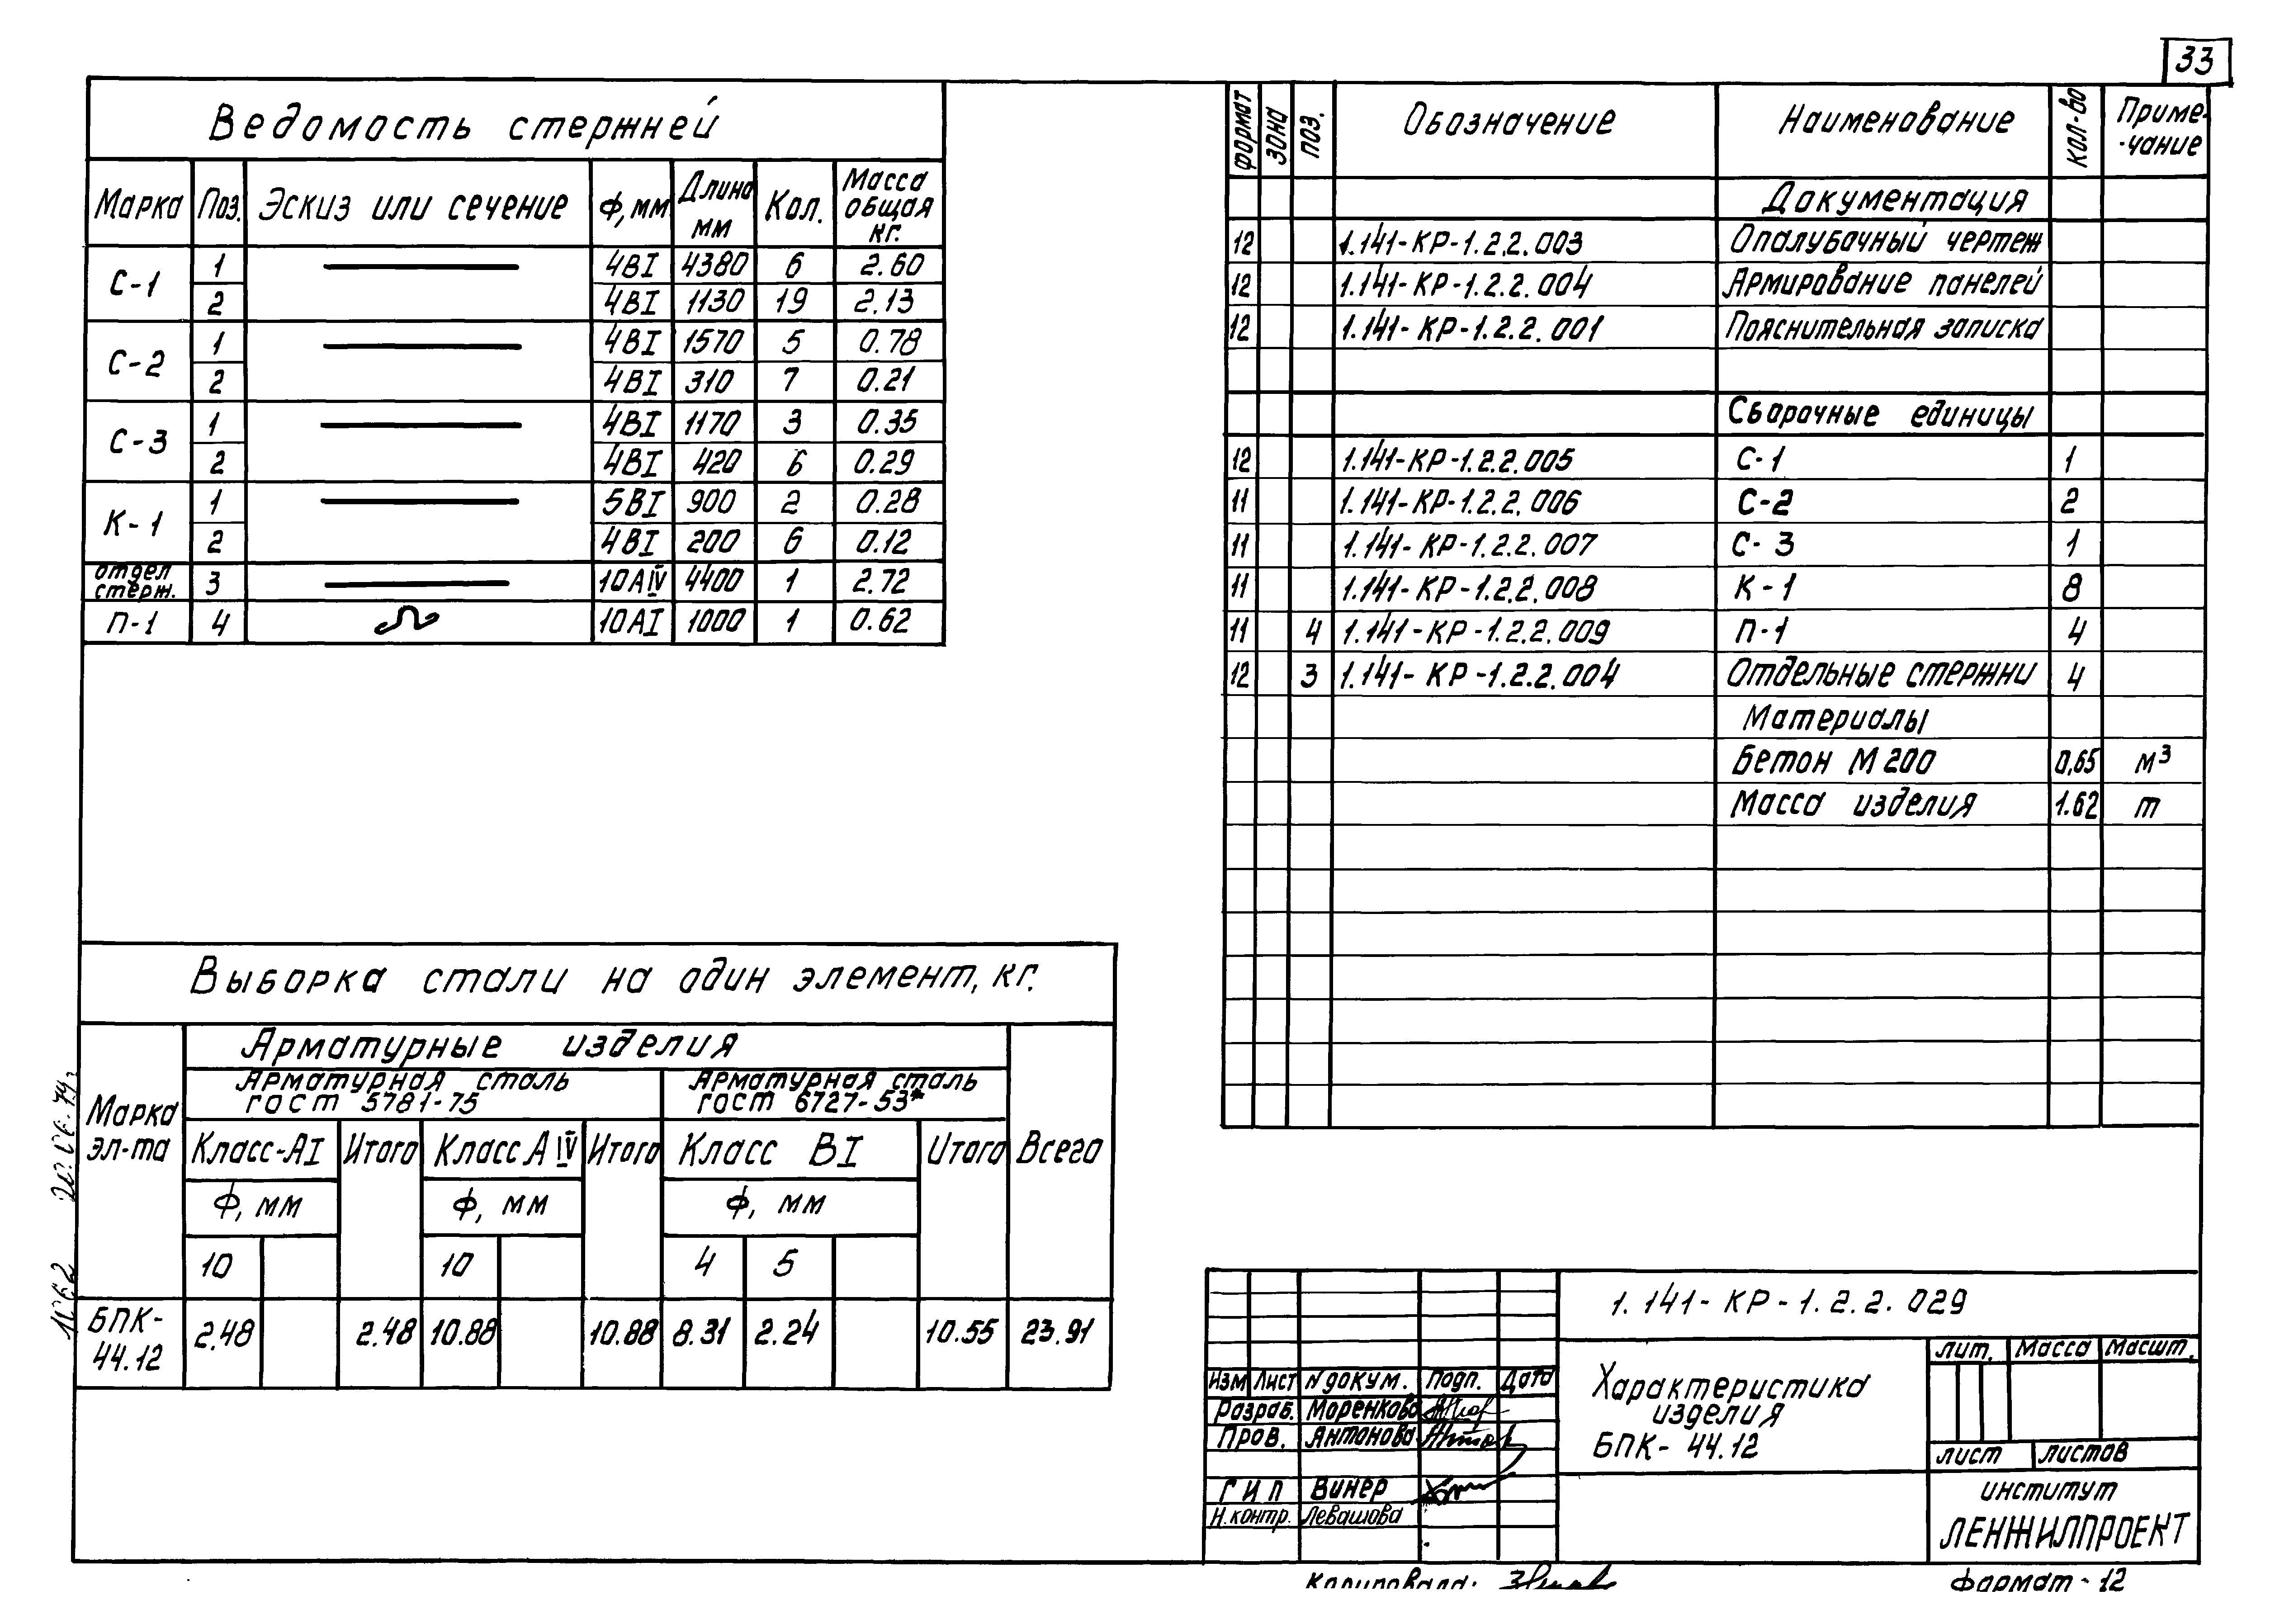 33
Ведомость стержней
Марка Поз. Эскиз или сечение Ф, мм Длина мм Кол. Масса общая кг.
С-1 1 4ВI 4380 6 2.60
2 4ВI 1130 19 2.13
С-2 1 4ВI 1570 5 0.78
2 4ВI 310 7 0.21
С-3 1 4ВI 1170 3 0.35
2 4ВI 420 6 0.29
К-1 1 5ВI 900 2 0.28
2 4ВI 200 6 0.12
отдел стерж. 3 10АIV 4400 1 2.72
П-1 4 10АI 1000 1 0.62
формат зона поз. Обозначение Наименование кол-во Приме-
-чание
Документация
12 1.141-КР-1.2.2.003 Опалубочный чертеж
12 1.141-КР-1.2.2.004 Армирование панелей
12 1.141-КР-1.2.2.001 Пояснительная записка
Сборочные единицы
12 1.141-КР-1.2.2.005 С-1 1
11 1.141-КР-1.2.2.006 С-2 2
11 1.141-КР-1.2.2.007 С-3 1
11 1.141-КР-1.2.2.008 К-1 8
11 4 1.141-КР-1.2.2.009 П-1 4
12 3 1.141-КР-1.2.2.004 Отдельные стержни 4
Материалы
Бетон М200 0,65 м³
Масса изделия 1.62 т
Выборка стали на один элемент, кг.
Марка эл-та Арматурные изделия Всего
Арматурная сталь гост 5781-75 Арматурная сталь гост 6727-53*
Класс-АI Итого Класс АIV Итого Класс ВI Итого
Ф, мм Ф, мм Ф, мм
10 10 4 5
БПК-44.12 2.48 2.48 10.88 10.88 8.31 2.24 10.55 23.91
1.141-КР-1.2.2.029
Изм Лист N докум. Подп. Дата
Разраб. Моренкова
Пров. Антонова
ГИП Винер
Н.контр. Левашова
Характеристика
изделия
БПК-44.12
лит. Масса Масшт.
лист листов
институт
ЛЕНЖИЛПРОЕКТ
Копировала:
Формат-12